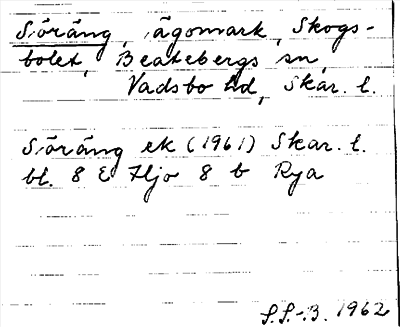 Sjöräng, ägomark, Skogs-
bolet, Beatebergs sn,
Vadsbo hd, Skar. l.
Sjöräng ek (1961) Skar. l.
bl. 8 E Hjo 8 b Rya
S.S.-B. 1962